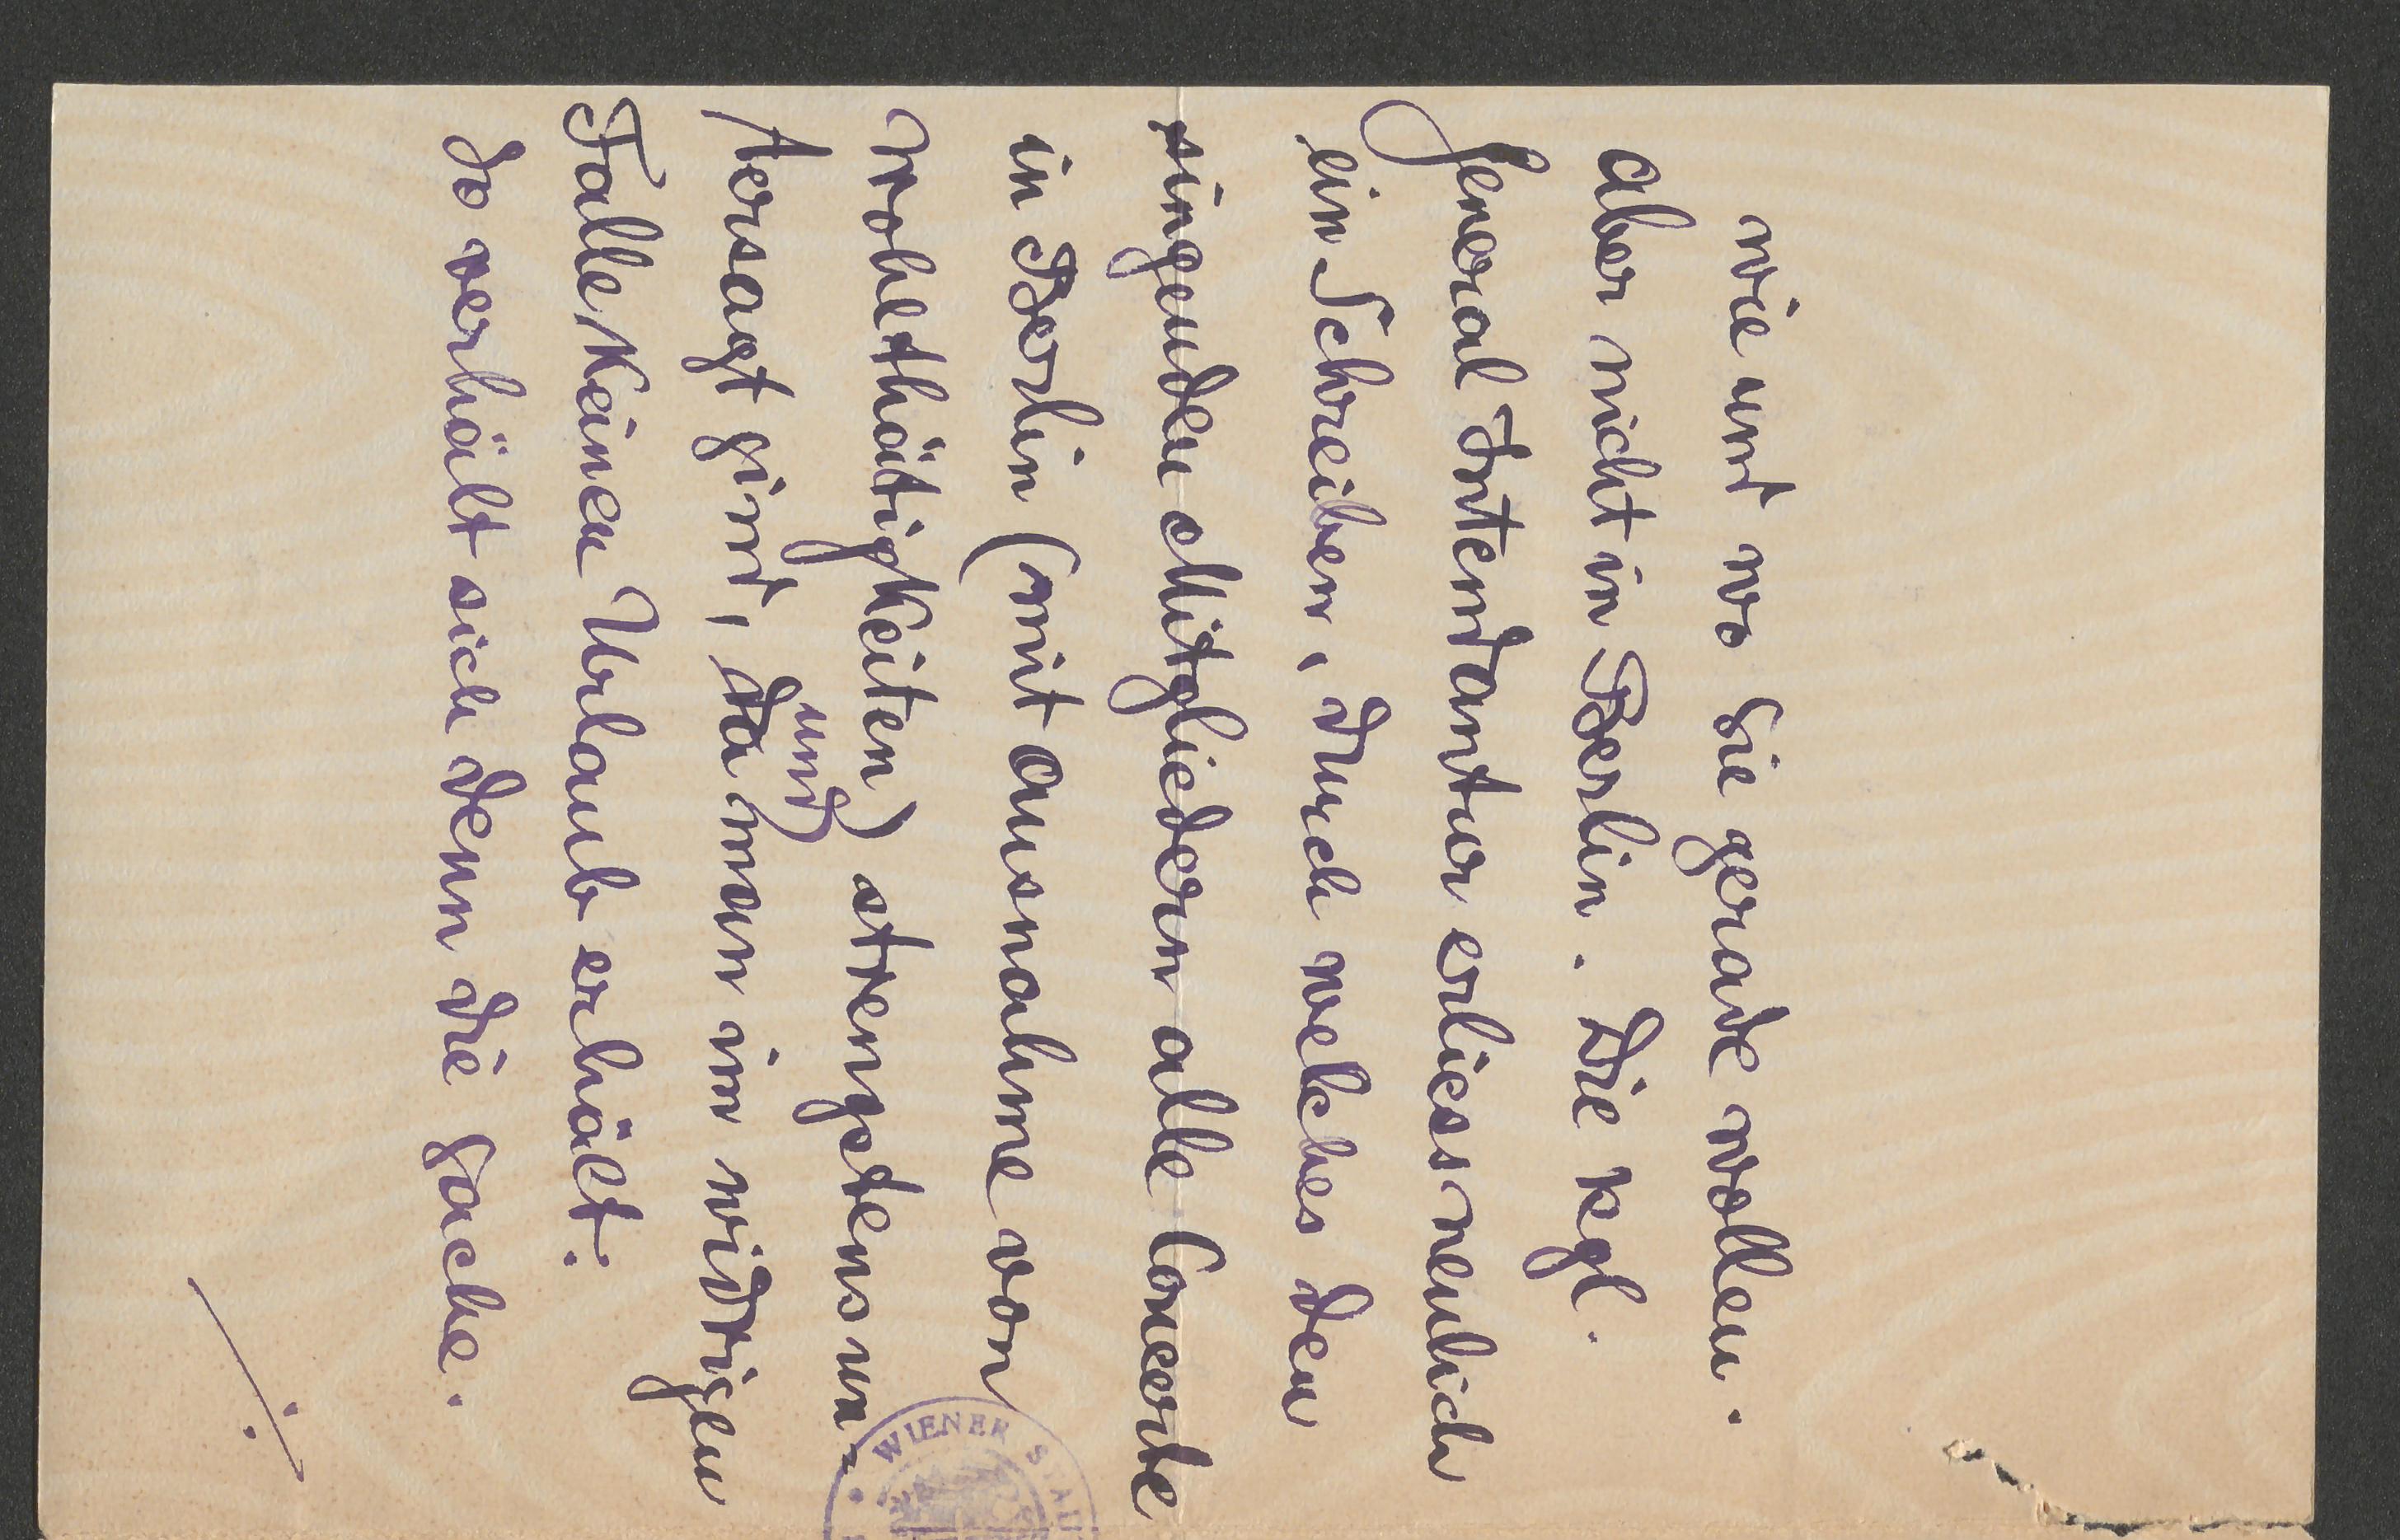 wie und wo sie gerade wollen.
aber nicht in Berlin. Die kgl.
General Intendantur erliess neulich
ein Schreiben, durch welches den
singenden Mitgliedern alle Concerte
in Berlin (mit Ausnahme von
Wohlthätigkeiten) strengstens un-
tersagt sind, und
da man im widrigen
Falle keinen Urlaub erhält:
So verhält sich denn die Sache.
./.
WIENER STADT